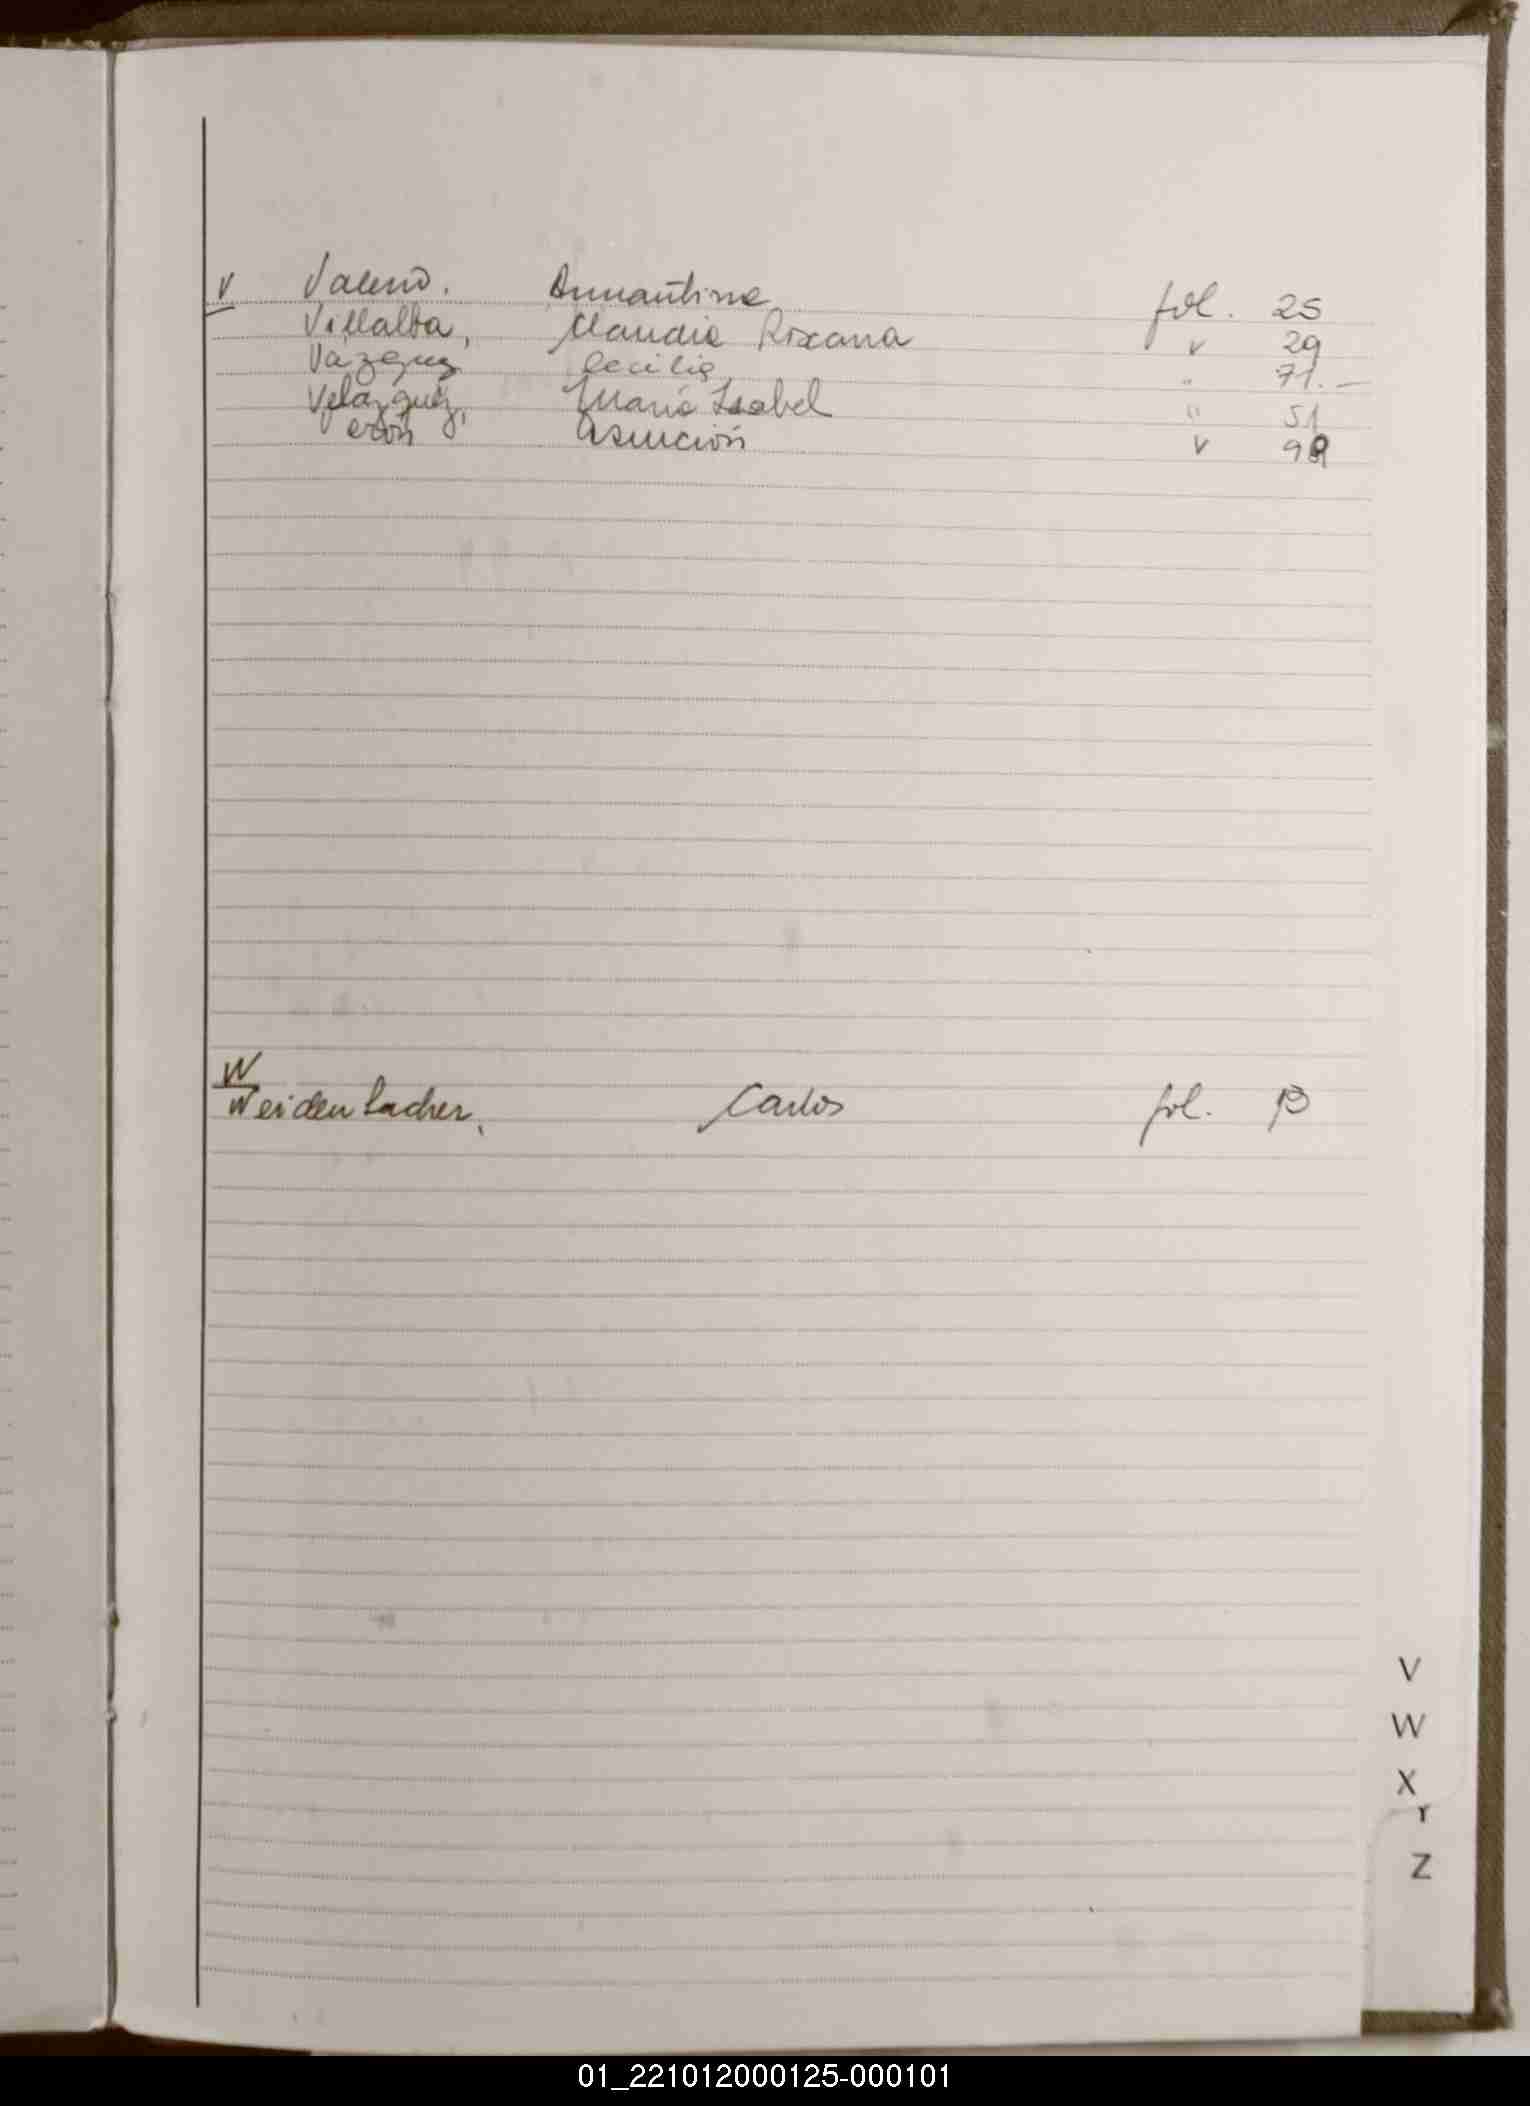 V
Villalba, Claudia Roxana fol. 25
v 29
Vazquez Cecilia " 71.-
Velazquez, María Isabel " 51
Asunción v 98
W
Weidenbacher, Carlos fol. 13
V
W
X
Y
Z
01_221012000125-000101